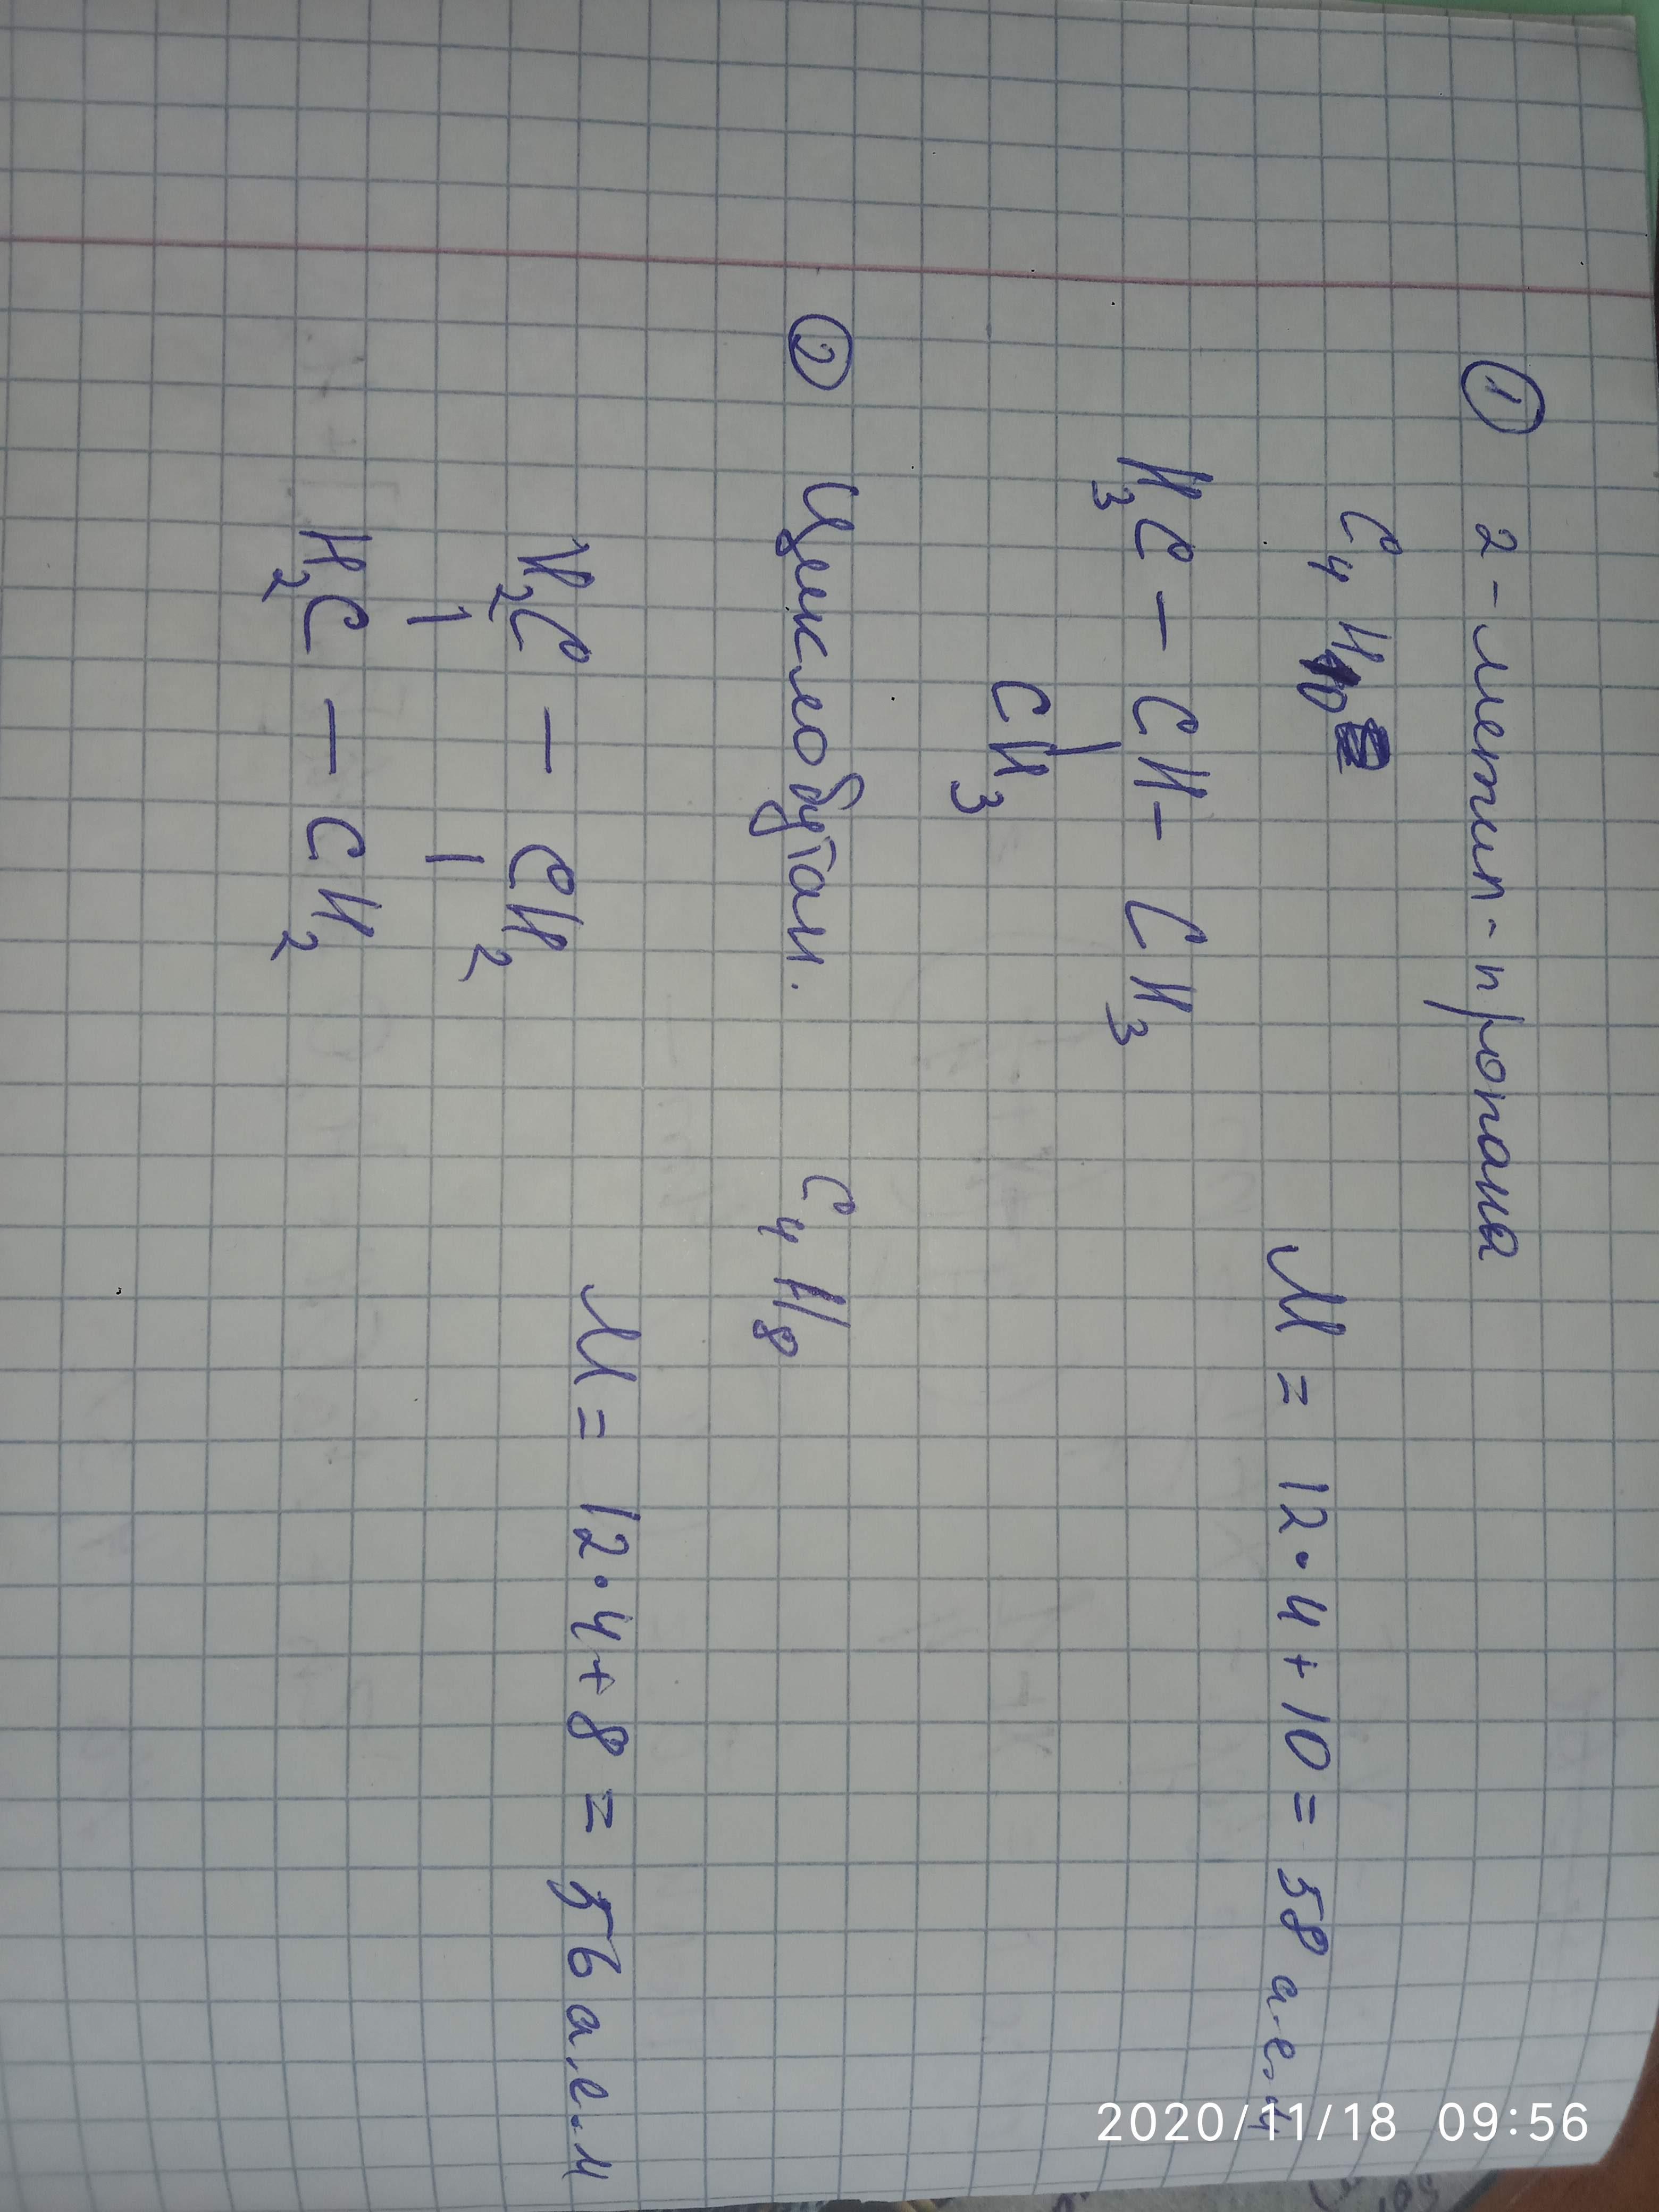 ① 2-метил-пропана
C₄H₁₀
M = 12·4+10 = 58 а.е.м
H₃C – CH – CH₃
|
CH₃
② Циклобутан. C₄H₈
M = 12·4+8 = 56 а.е.м
H₂C – CH₂
| |
H₂C – CH₂
2020/11/18 09:56